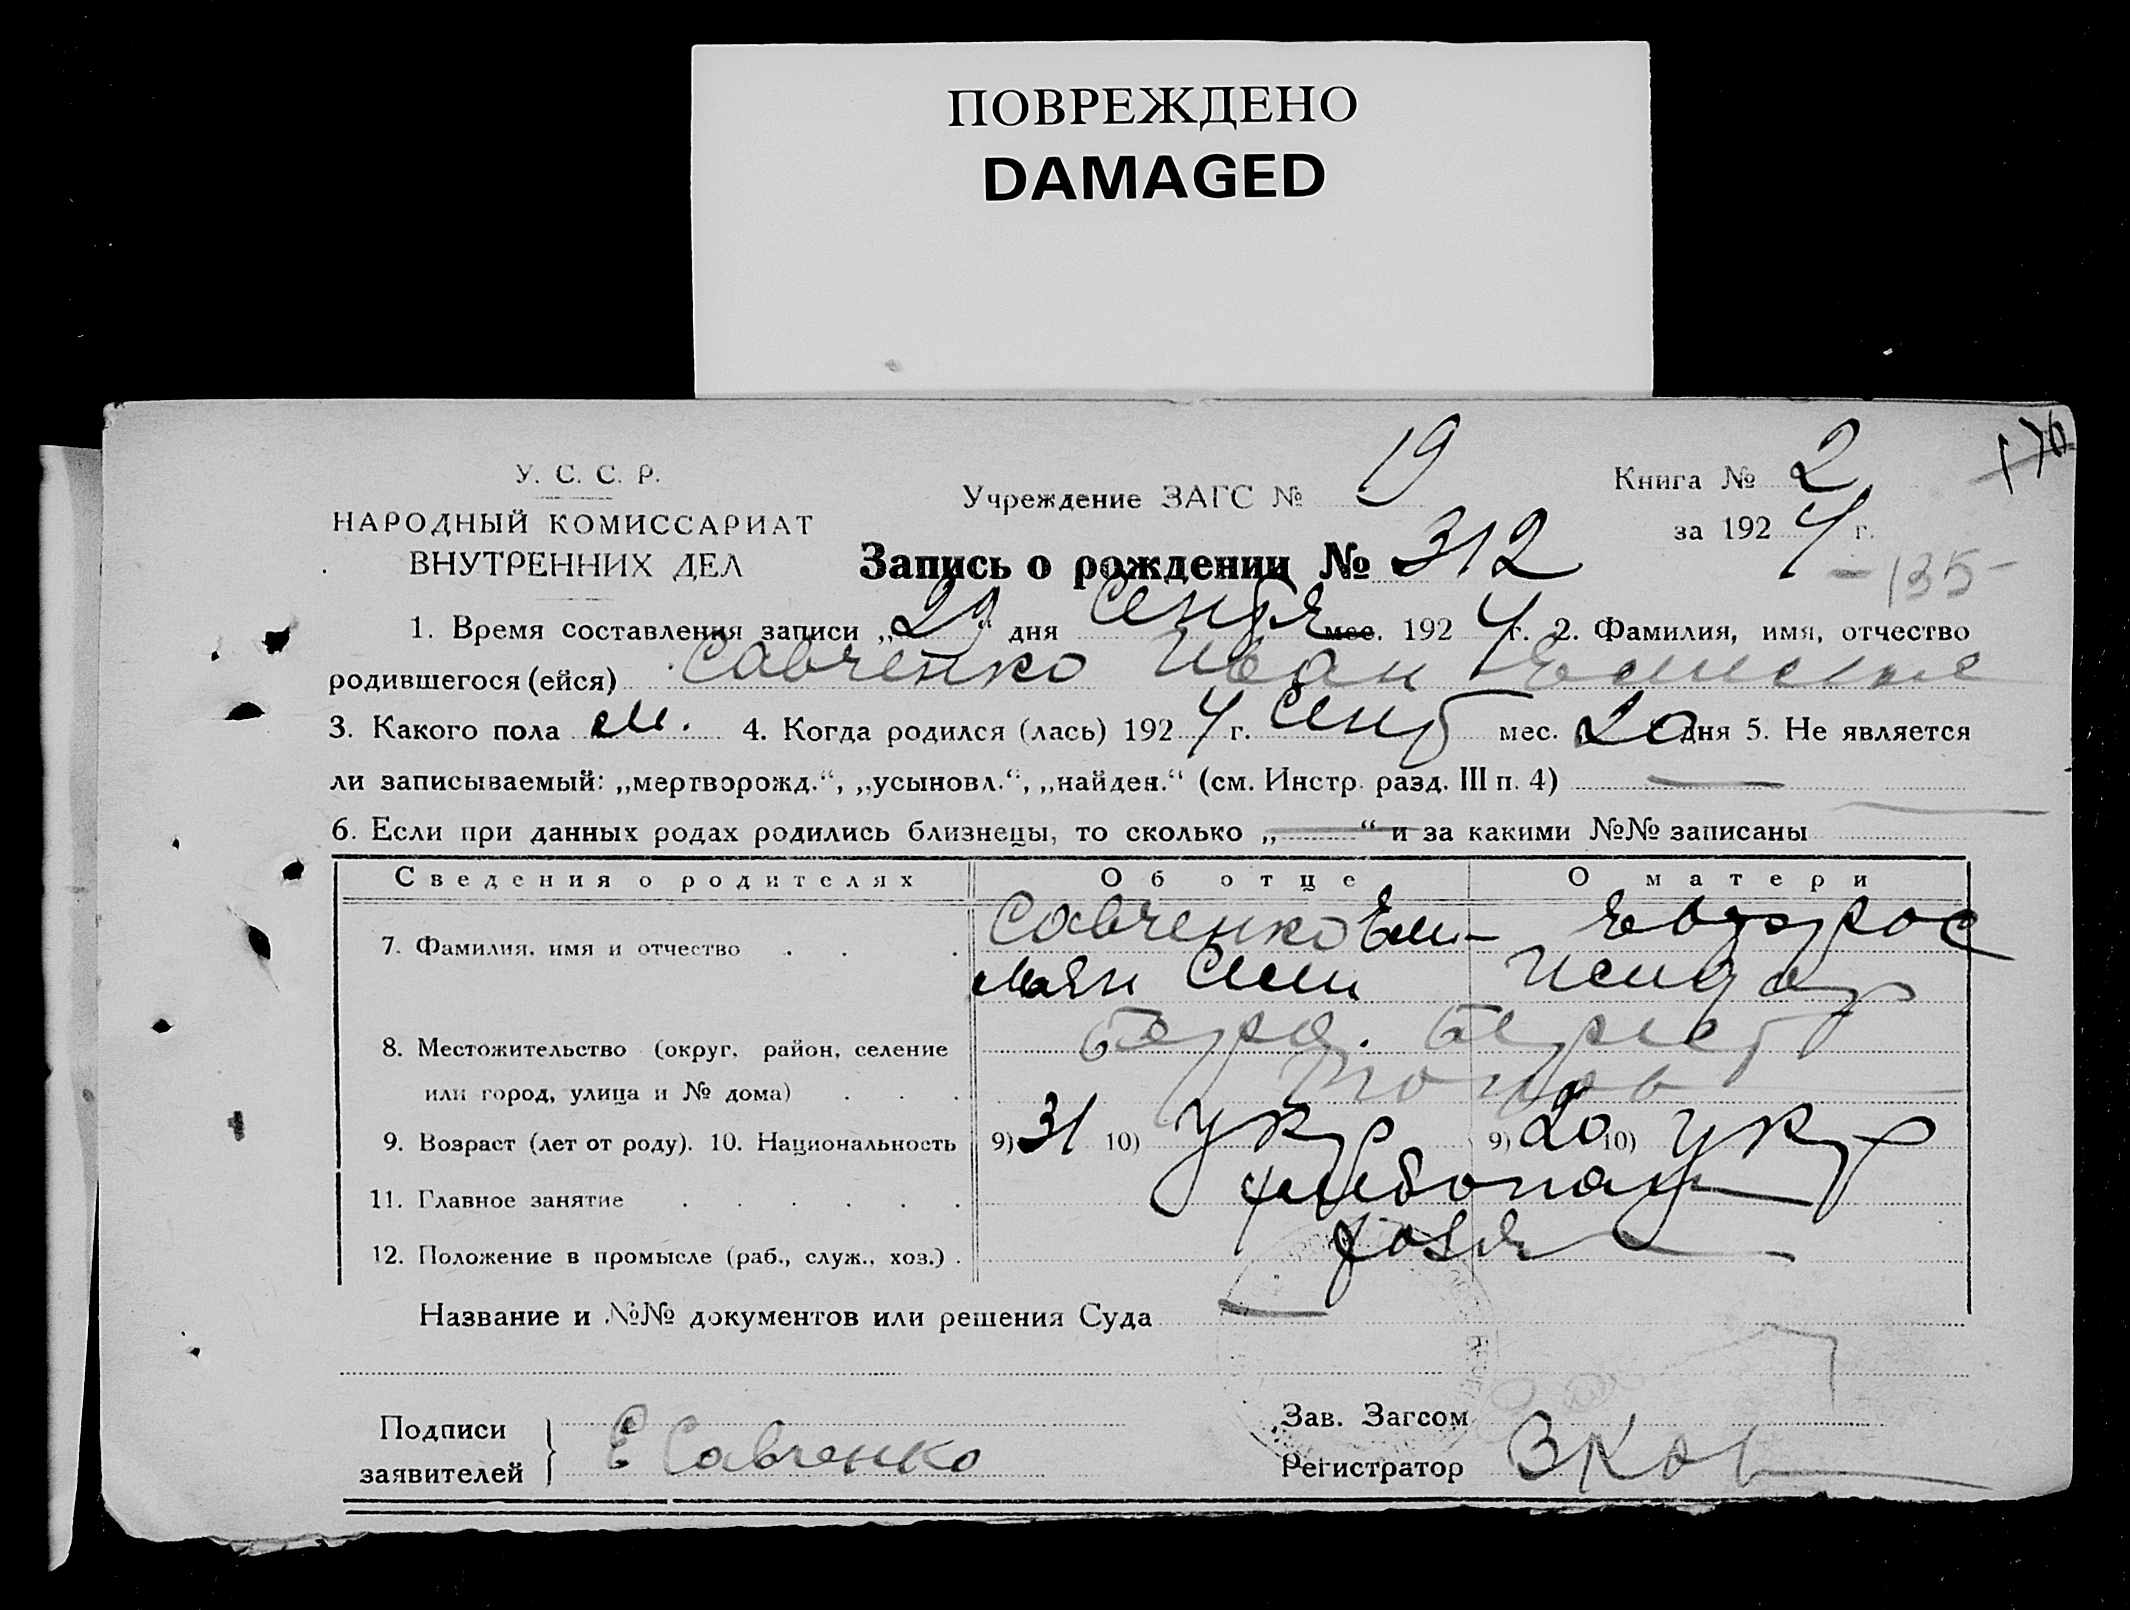 ПОВРЕЖДЕНО
DAMAGED
У. С. С. Р.
НАРОДНЫЙ КОМИССАРИАТ
ВНУТРЕННИХ ДЕЛ
Учреждение ЗАГС № 19
Книга № 2
за 1924 г.
170
Запись о рождении № 312
-135-
1. Время составления записи „29“ дня Сентбя мес. 1924 г. 2. Фамилия, имя, отчество
родившегося (ейся) Савченко Иван
3. Какого пола м. 4. Когда родился (лась) 1924 г. Сент мес. 20 дня 5. Не является
ли записываемый: „мертворожд.“, „усыновл.“, „найден.“ (см. Инстр. разд. III п. 4) —
6. Если при данных родах родились близнецы, то сколько „—“ и за какими №№ записаны
Сведения о родителях Об отце О матери
7. Фамилия, имя и отчество Савченко Еме- Евдок
льян Сем Исидор
8. Местожительство (округ, район, селение
или город, улица и № дома)
9. Возраст (лет от роду). 10. Национальность 9) 31 10) Укр 9) 20 10) Укр
11. Главное занятие хлебопаш
12. Положение в промысле (раб., служ., хоз.) хозя
Название и №№ документов или решения Суда —
Подписи
заявителей
Е Савченко
Зав. Загсом
Регистратор